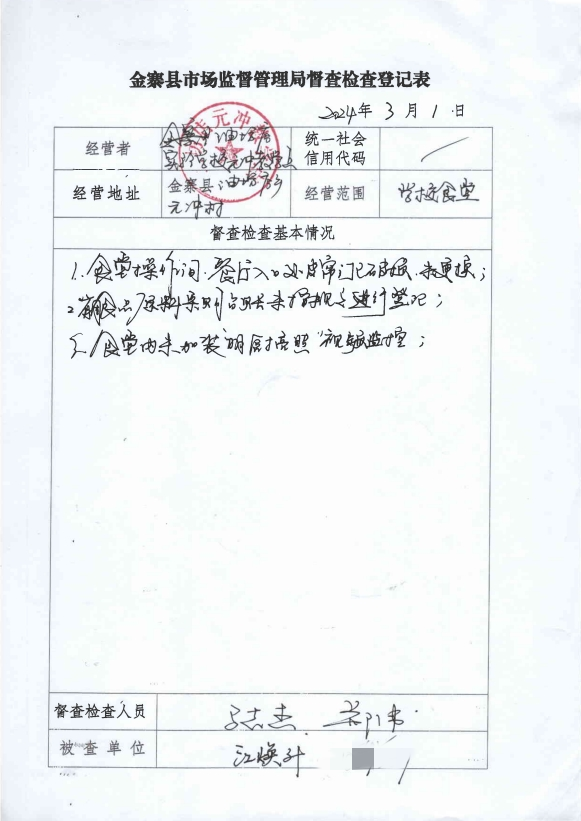 金寨县市场监督管理局督查检查登记表
2024年 3月 1日
经营者
金寨县油坊店
实验学校元冲教学点
统一社会
信用代码
经营地址
金寨县油坊店乡
元冲村
经营范围
学校食堂
督查检查基本情况
1、食堂操作间、餐厅入口处皮帘门已破损、未更换;
2、食品原料采购台账未按规定进行登记;
三、食堂内未加装"明厨亮照"视频监控;
督查检查人员
被查单位
江焕升